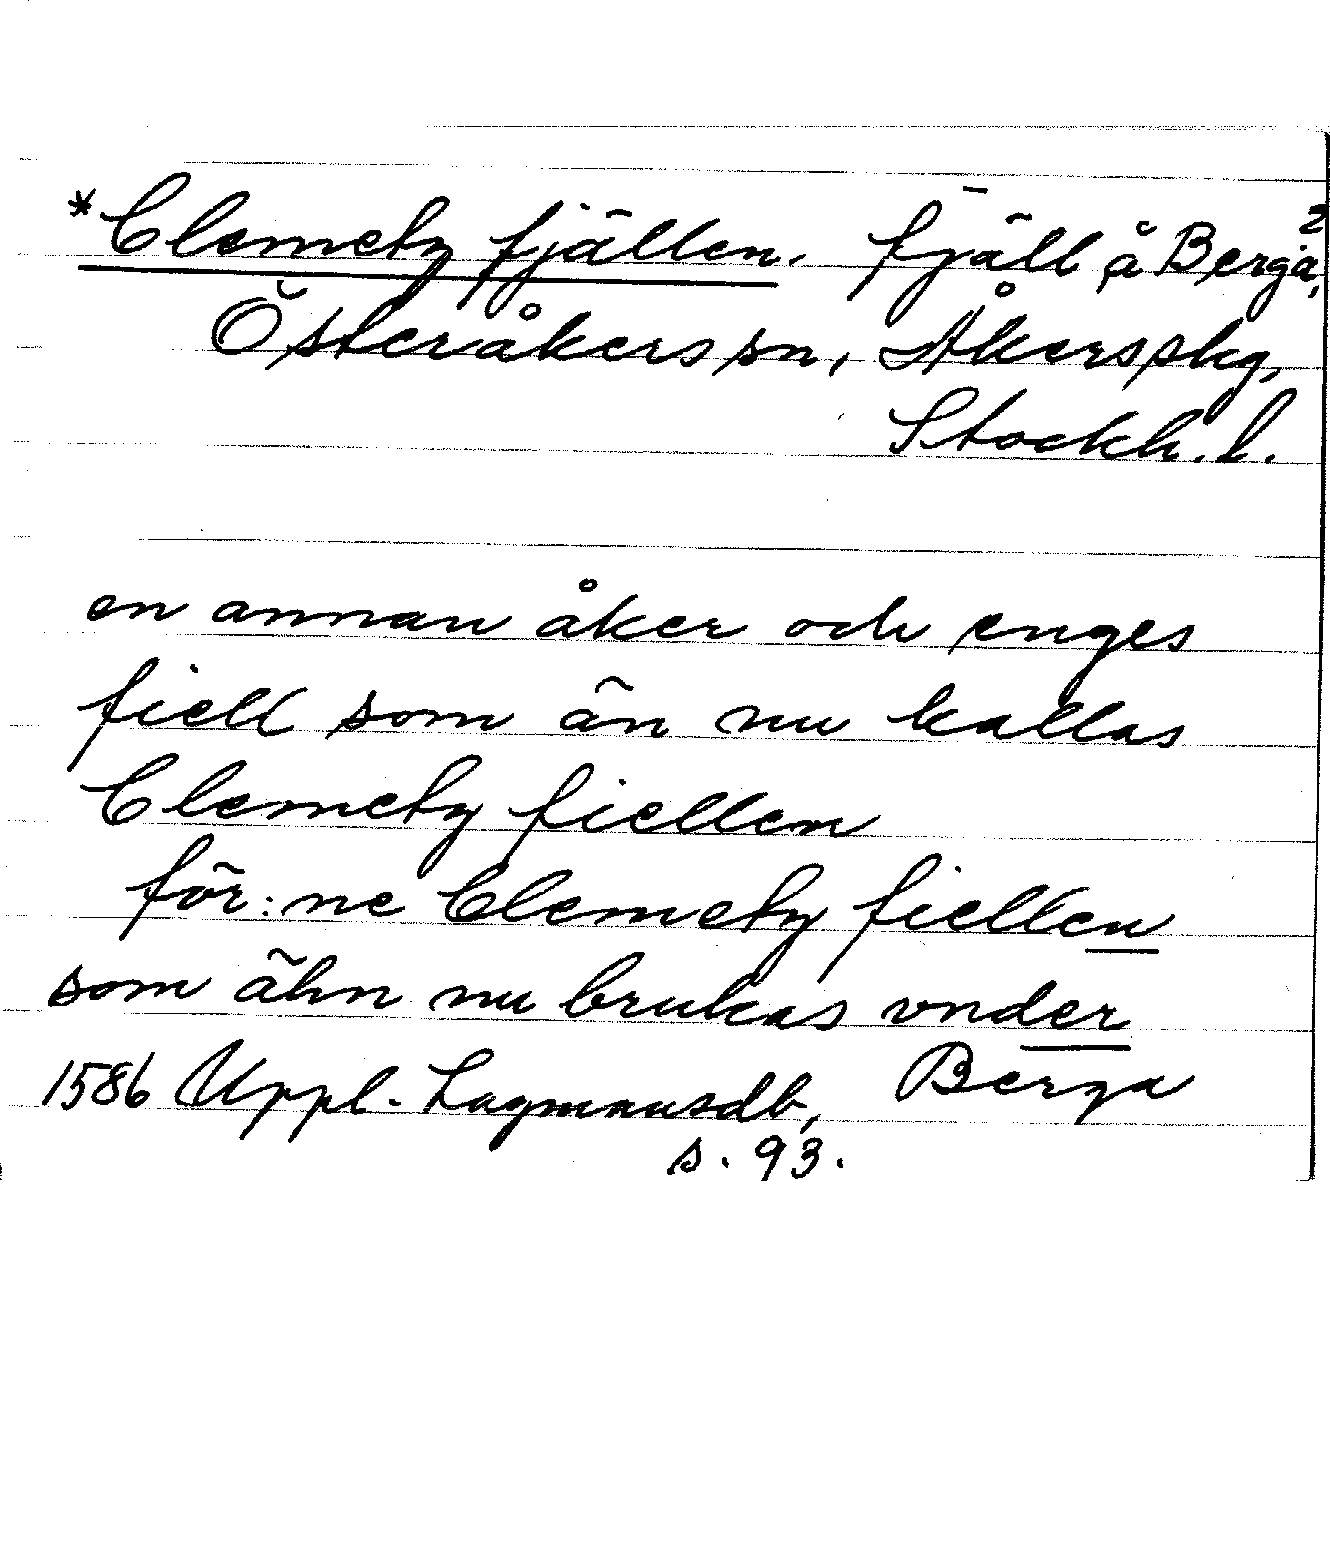 *Clemetz fjällen. fjäll å Berga,²
Österåkers sn, Åkers skg,
Stockh. l.
en annan åker och enges
fiell som än nu kallas
Clemetz fiellen
för:ne Clemetz fiellen
som ähn nu brukas vnder
Berga
1586 Uppl. Lagmansdb,
s. 93.